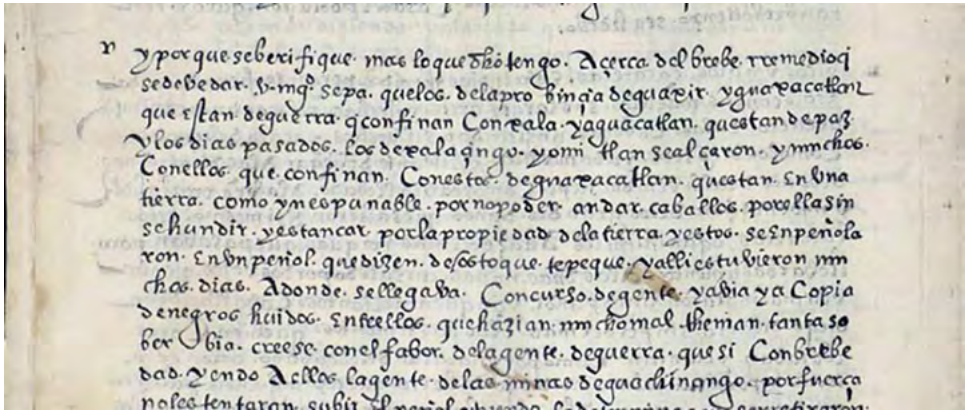 y porque se berifique. mas lo que dho tengo. Acerca del brebe rremedio q̄
se debe dar. v. mgd. sepa. que los. de la probinçia de guaxir. y guaxacatlan
que estan de guerra. q̄ confinan Con xala. y aguacatlan. questan de paz
y los dias pasados. los de xalaçingo. y omitlan se alçaron. y muchos.
Con ellos que confinan. Con estos. de guaxacatlan. questan. En vna
tierra. como ynespunable. por no poder. andar. caballos. por ella sin
se hundir. y estancar por la propiedad de la tierra y estos. se Enpeñola
ron. En vn peñol. que dizen. de xostoque. tepeque. y alli estuvieron mu
chos. dias. Adonde. se llegava. Concurso. de gente. y avia ya Copia
de negros huidos. Entrellos. que hazian. mucho mal. thenian. tanta so
berbia. creese. con el fabor. de la gente. de guerra. que si Con brebe
dad. yendo A ellos la gente. de las minas de guachinango. por fuerça
no les tentaran. subir el peñol